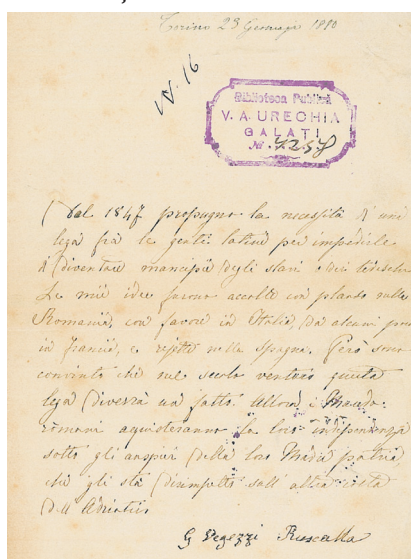 Torino 23 Gennajo 1880
N. 16
Biblioteca Publică
V. A. URECHIA
GALAȚI
№ 4257
Dal 1847 propugno la necessità d'una
lega fra le genti latine per impedirle
di diventare mancipii degli slavi o dei tedeschi
Le mie idee furono accolte con plauso nella
Romania, con favore in Italia, da alcuni pochi
in Francia, e rejette nella Spagna. Però sono
convinto che nel secolo venturo questa
lega diverrà un fatto. Allora i Macedo-
romani aquisteranno la loro indipendenza
sotto gli auspici della loro Madre patria,
che gli sta dirimpetto sull'altra costa
dell'Adriatico
G Vegezzi Ruscalla